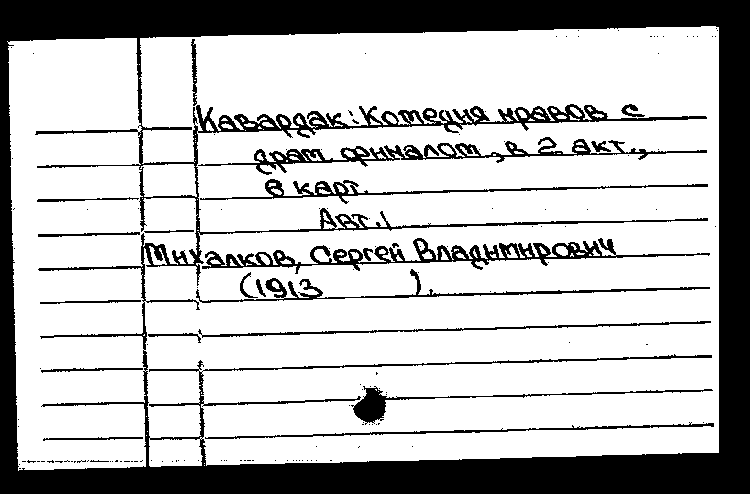 Кавардак: Комедия нравов с
драт. финалом, в 2 акт.,
8 карт.
Авт.:
Михалков, Сергей Владимирович
(1913 ).